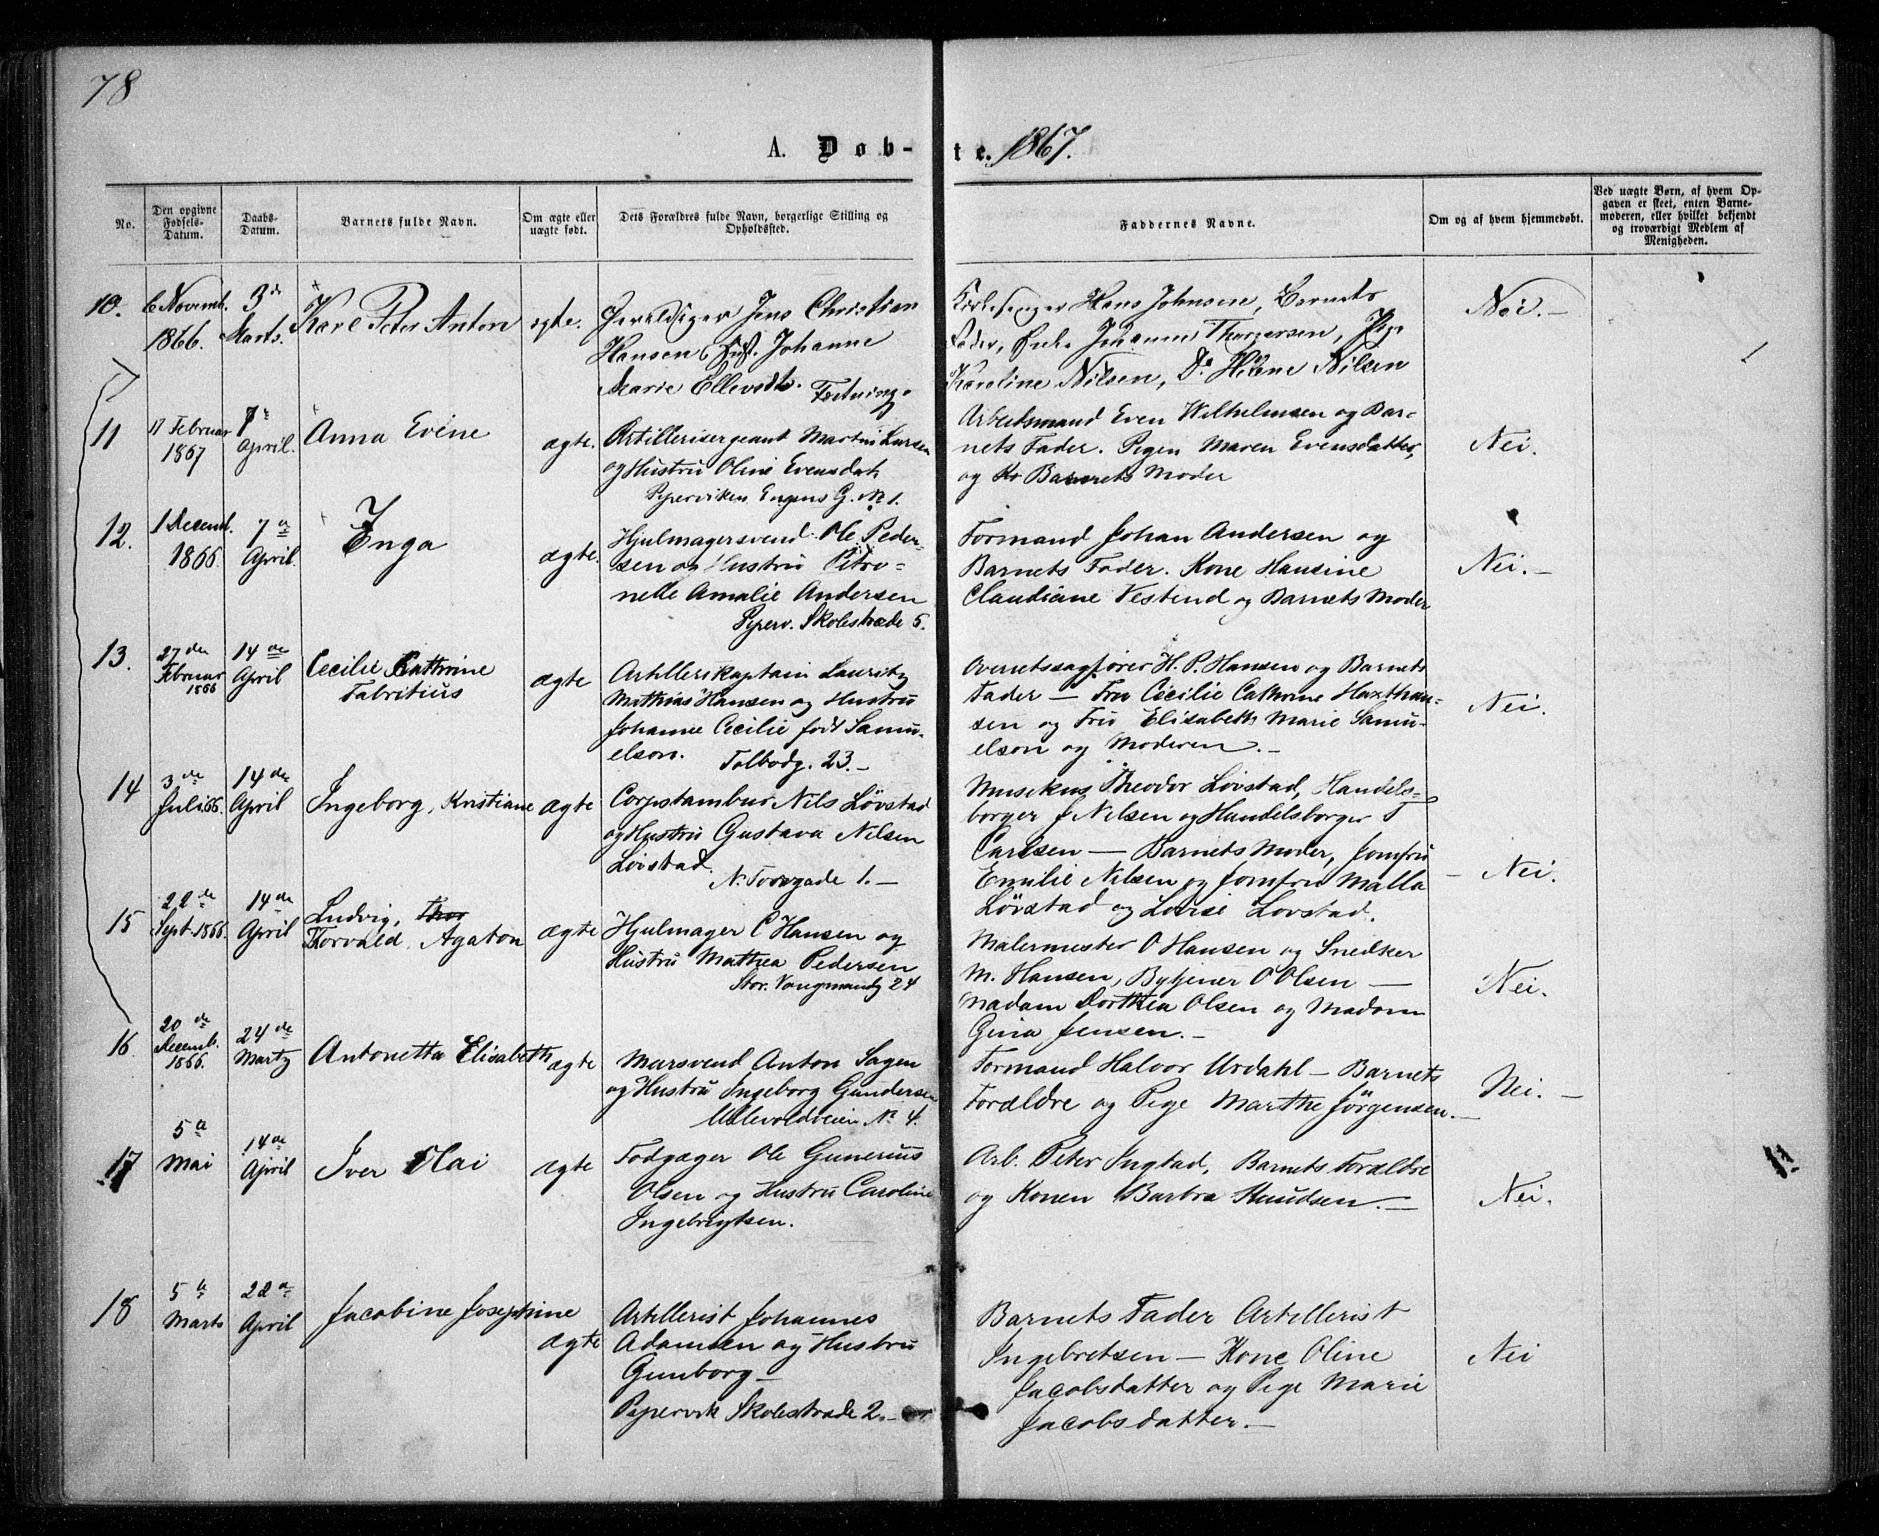 78
A. Døb-te. 1867.
No.
Den opgivne Fødsels-Datum.
Daabs-Datum.
Barnets fulde Navn.
Om ægte eller uægte født.
Dets Forældres fulde Navn, borgerlige Stilling og Opholdssted.
Faddernes Navne.
Om og af hvem hjemmedøbt.
Ved uægte Børn, af hvem Opgaven er skeet, enten Barnemoderen, eller hvilket bekjendt og troværdigt Medlem af Menigheden.
10.
6 Novemb.
1866.
3de
Marts.
Karl Peter Anton
ægte.
Jens Christian
Hansen, Hust. Johanne
Marie Ellevsdtr. Fæstning.
Kirkesanger Hans Johnsen, Barnets
Fader, Enke Johanne Thorgersen, Pige
Karoline Nilsen, Do Helene Nilsen
Nei.-
11
17 Februar
1867
7de
April.
Anna Evine
ægte.
Artillerisergeant Martin Larsen
og Hustru Oline Evensdatt
Piperviken Engens G. No 1.
Arbeidsmand Even Wilhelmsen og Bar-
nets Fader. Pigen Maren Evensdatter,
og Barnets Moder
Nei.
12.
1 Decemb.
1866
7de
April.
Inga
ægte.
Hjulmagersvend Ole Peder-
sen og Hustru Petro-
nelle Amalie Andersen
Piperv. Skolestræde 5.
Formand Johan Andersen og
Barnets Fader. Kone Hansine
Claudiane Vestend og Barnets Moder
Nei.-
13.
27 den
Februar
1866
14 de
April
Cecilie Cathrine
Fabritius
ægte
Artillerikaptain Lauritz
Mathias Hansen og Hustru
Johanne Cecilie født Samu-
elson. Tolbodg. 23.-
Overretssagfører H. P. Hansen og Barnets
Fader - Fru Cecilie Cathrine Haxthau-
sen og Fru Elisabeth Marie Samu-
elson og Moderen.-
Nei.
14
3 de
Juli 66.
14 de
April
Ingeborg, Kristiane
ægte
Corpstambur Nils Lövstad
og Hustru Gustava Nilsen
Lövstad.
N. Torvgade 1.-
Musikus Theodor Lövstad, Handels-
borger J Nilsen og Handelsborger T
Carlsen - Barnets Moder, Jomfru
Emilie Nilsen og Jomfru Malla
Lövstad og Lovise Lovstad.
- Nei.
15
22 de
Sept. 1866.
14 de
April
Ludvig, Thor
Torvald Agaton
ægte
Hjulmager C Hansen og
Hustru Mathea Pedersen
Stor. Vongmandg 24
Malermester O Hansen og Snedker
M. Hansen, Bytjener O Olsen -
Madam Dorthea Olsen og Madam
Gina Jensen.-
Nei.
16
20 de
Decemb.
1866.
24 de
Martz
Antonetta Elisabeth
ægte
Mursvend Anton Sagen
og Hustru Ingeborg Gundersen
Ullevoldveien No 4.
Formand Halvor Urdahl - Barnets
Forældre og Pige Marthe Jörgensen.-
Nei.-
17
5 de
Mai
14 de
April
Iver Olai
ægte
Fodgæger Ole Gunerius
Olsen og Hustru Caroline
Ingebrigtsen.
Arb. Peter Ingstad, Barnets Forældre
og Konen Barbra Knudsen.-
Nei.
18
5 de
Marts
22 de
April
Jacobine Josephine
ægte
Artillerist Johannes
Adamsen og Hustru
Gunborg-
Pipervik Skolestræde 2.-
Barnets Fader Artillerist
Ingebretsen - Kone Oline
Jacobsdatter og Pige Marie
Jacobsdatter.-
Nei